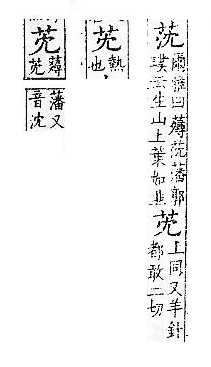 莐爾雅曰蕁莐藩郭
璞云生山上葉如韭
䒞上同又羊針
都敢二切
䒞熱
也
䒞蕁
䒞
藩又
音沈